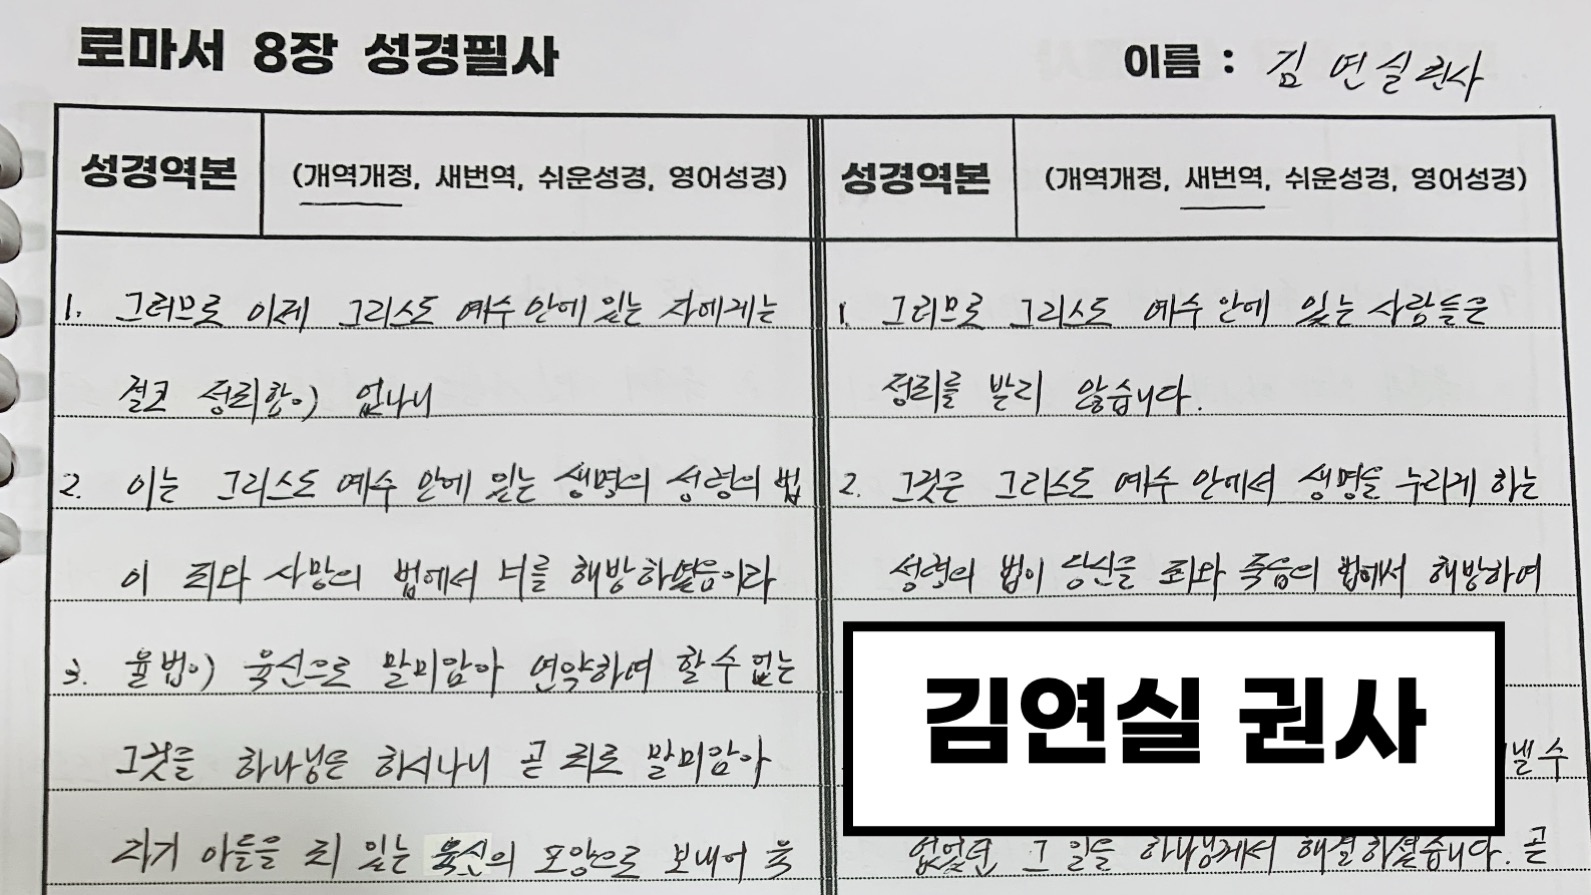 로마서 8장 성경필사
이름 : 김 연 실 권사
성경역본 (개역개정, 새번역, 쉬운성경, 영어성경)
1. 그러므로 이제 그리스도 예수 안에 있는 자에게는
결코 정죄함이 없나니
2. 이는 그리스도 예수 안에 있는 생명의 성령의 법
이 죄와 사망의 법에서 너를 해방하였음이라
3. 율법이 육신으로 말미암아 연약하여 할 수 없는
그것을 하나님은 하시나니 곧 죄로 말미암아
자기 아들을 죄 있는 육신의 모양으로 보내어 육
성경역본 (개역개정, 새번역, 쉬운성경, 영어성경)
1. 그러므로 그리스도 예수 안에 있는 사람들은
정죄를 받지 않습니다.
2. 그것은 그리스도 예수 안에서 생명을 누리게 하는
성령의 법이 당신을 죄와 죽음의 법에서 해방하여
김연실 권사
낼 수
없었던 그 일을 하나님께서 해결하셨습니다. 곧